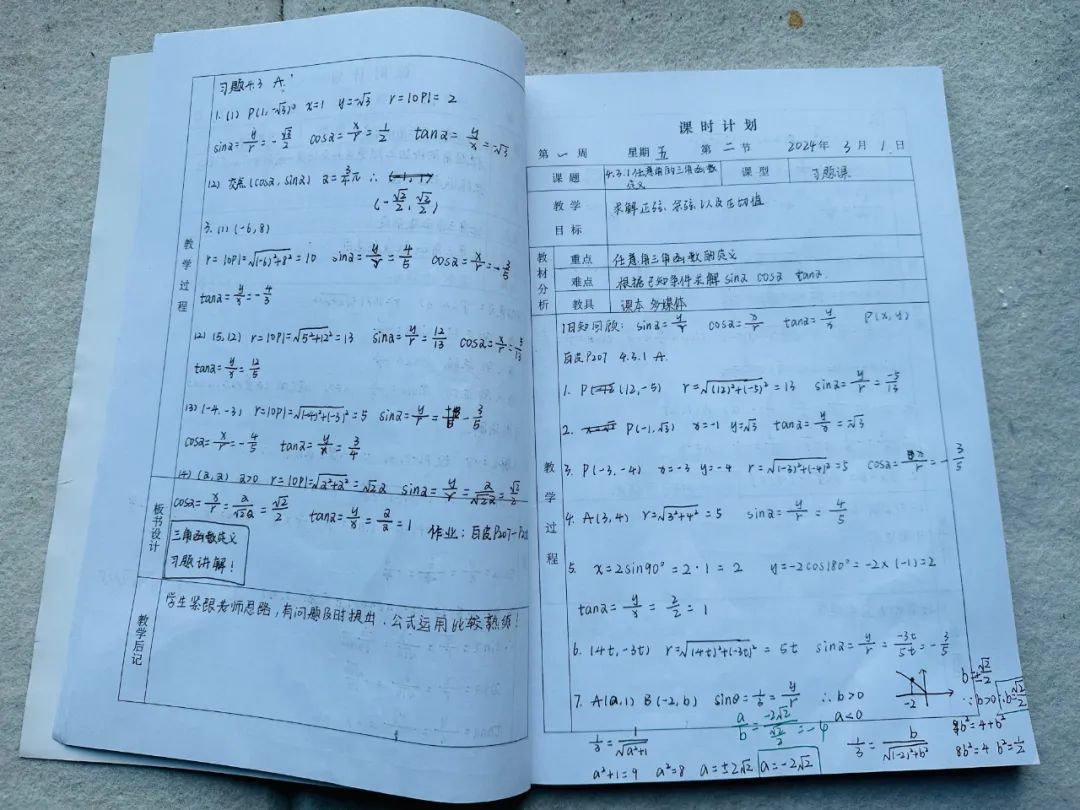 习题4.3 A.
1. (1) P(1, -√3) x=1 y=-√3 r=|OP|=2
sinα=y/r=-√3/2 cosα=x/r=1/2 tanα=y/x=-√3
(2) 交点(cosα, sinα) α=3/4π ∴
(-√2/2, √2/2)
3. (1) (-6, 8)
r=|OP|=√(-6)²+8²=10 sinα=y/r=4/5 cosα=x/r=-3/5
tanα=y/x=-4/3
(2) (5, 12) r=|OP|=√5²+12²=13 sinα=y/r=12/13 cosα=x/r=5/13
tanα=y/x=12/5
(3) (-4, -3) r=|OP|=√(-4)²+(-3)²=5 sinα=y/r=-3/5
cosα=x/r=-4/5 tanα=y/x=3/4
(4) (a, a) a>0 r=|OP|=√a²+a²=√2a sinα=y/r=a/√2a=√2/2
cosα=x/r=a/√2a=√2/2 tanα=y/x=a/a=1 作业：白皮P207-
教学过程
板书设计
三角函数定义
习题讲解！
教学后记
学生紧跟老师思路，有问题及时提出，公式运用比较熟练！
课时计划
第一周 星期五 第二节 2024年3月1日
课题 4.3.1任意角的三角函数定义 课型 习题课
教学目标 求解正弦、余弦以及正切值
教材分析
重点 任意角三角函数的定义
难点 根据已知条件求解sinα cosα tanα.
教具 课本 多媒体
教学过程
旧知回顾：sinα=y/r cosα=x/r tanα=y/x P(x, y)
白皮P207 4.3.1 A.
1. P(12, -5) r=√(12)²+(-5)²=13 sinα=y/r=-5/13
2. P(-1, √3) x=-1 y=√3 tanα=y/x=√3
3. P(-3, -4) x=-3 y=-4 r=√(-3)²+(-4)²=5 cosα=x/r=-3/5
4. A(3, 4) r=√3²+4²=5 sinα=y/r=4/5
5. x=2sin90°=2·1=2 y=-2cos180°=-2×(-1)=2
tanα=y/x=2/2=1
6. (4t, -3t) r=√(4t)²+(-3t)²=5t sinα=y/r=-3t/5t=-3/5
7. A(a, 1) B(-2, b) sinθ=1/3=y/r ∴b>0
a<0
-2
b=±√2/2
∵b>0 ∴b=√2/2
a/b=-2√2/(√2/2)=-4
1/3=1/√a²+1
1/3=b/√(-2)²+b²
9b²=4+b²
a²+1=9 a²=8 a=±2√2 a=-2√2
8b²=4 b²=1/2